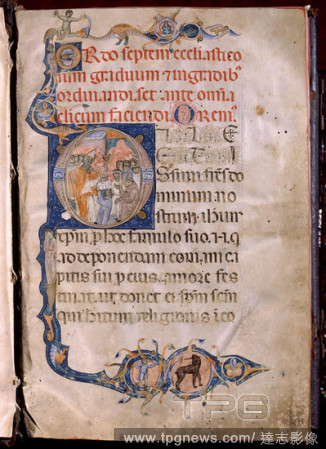 ORdo septem eccliastico
rum graduum & in gradib'
ordinandi. set ante omia
clicum faciendi. Orem'.
simi fres do
minum no
strum
p hoc famulo suo. i. q.
ad deponendam comam ca
pitis sui p eius amore fes
tinat. ut donet ei spm scm
qui habitum religionis i eo
TPG
www.tpgnews.com / 達志影像